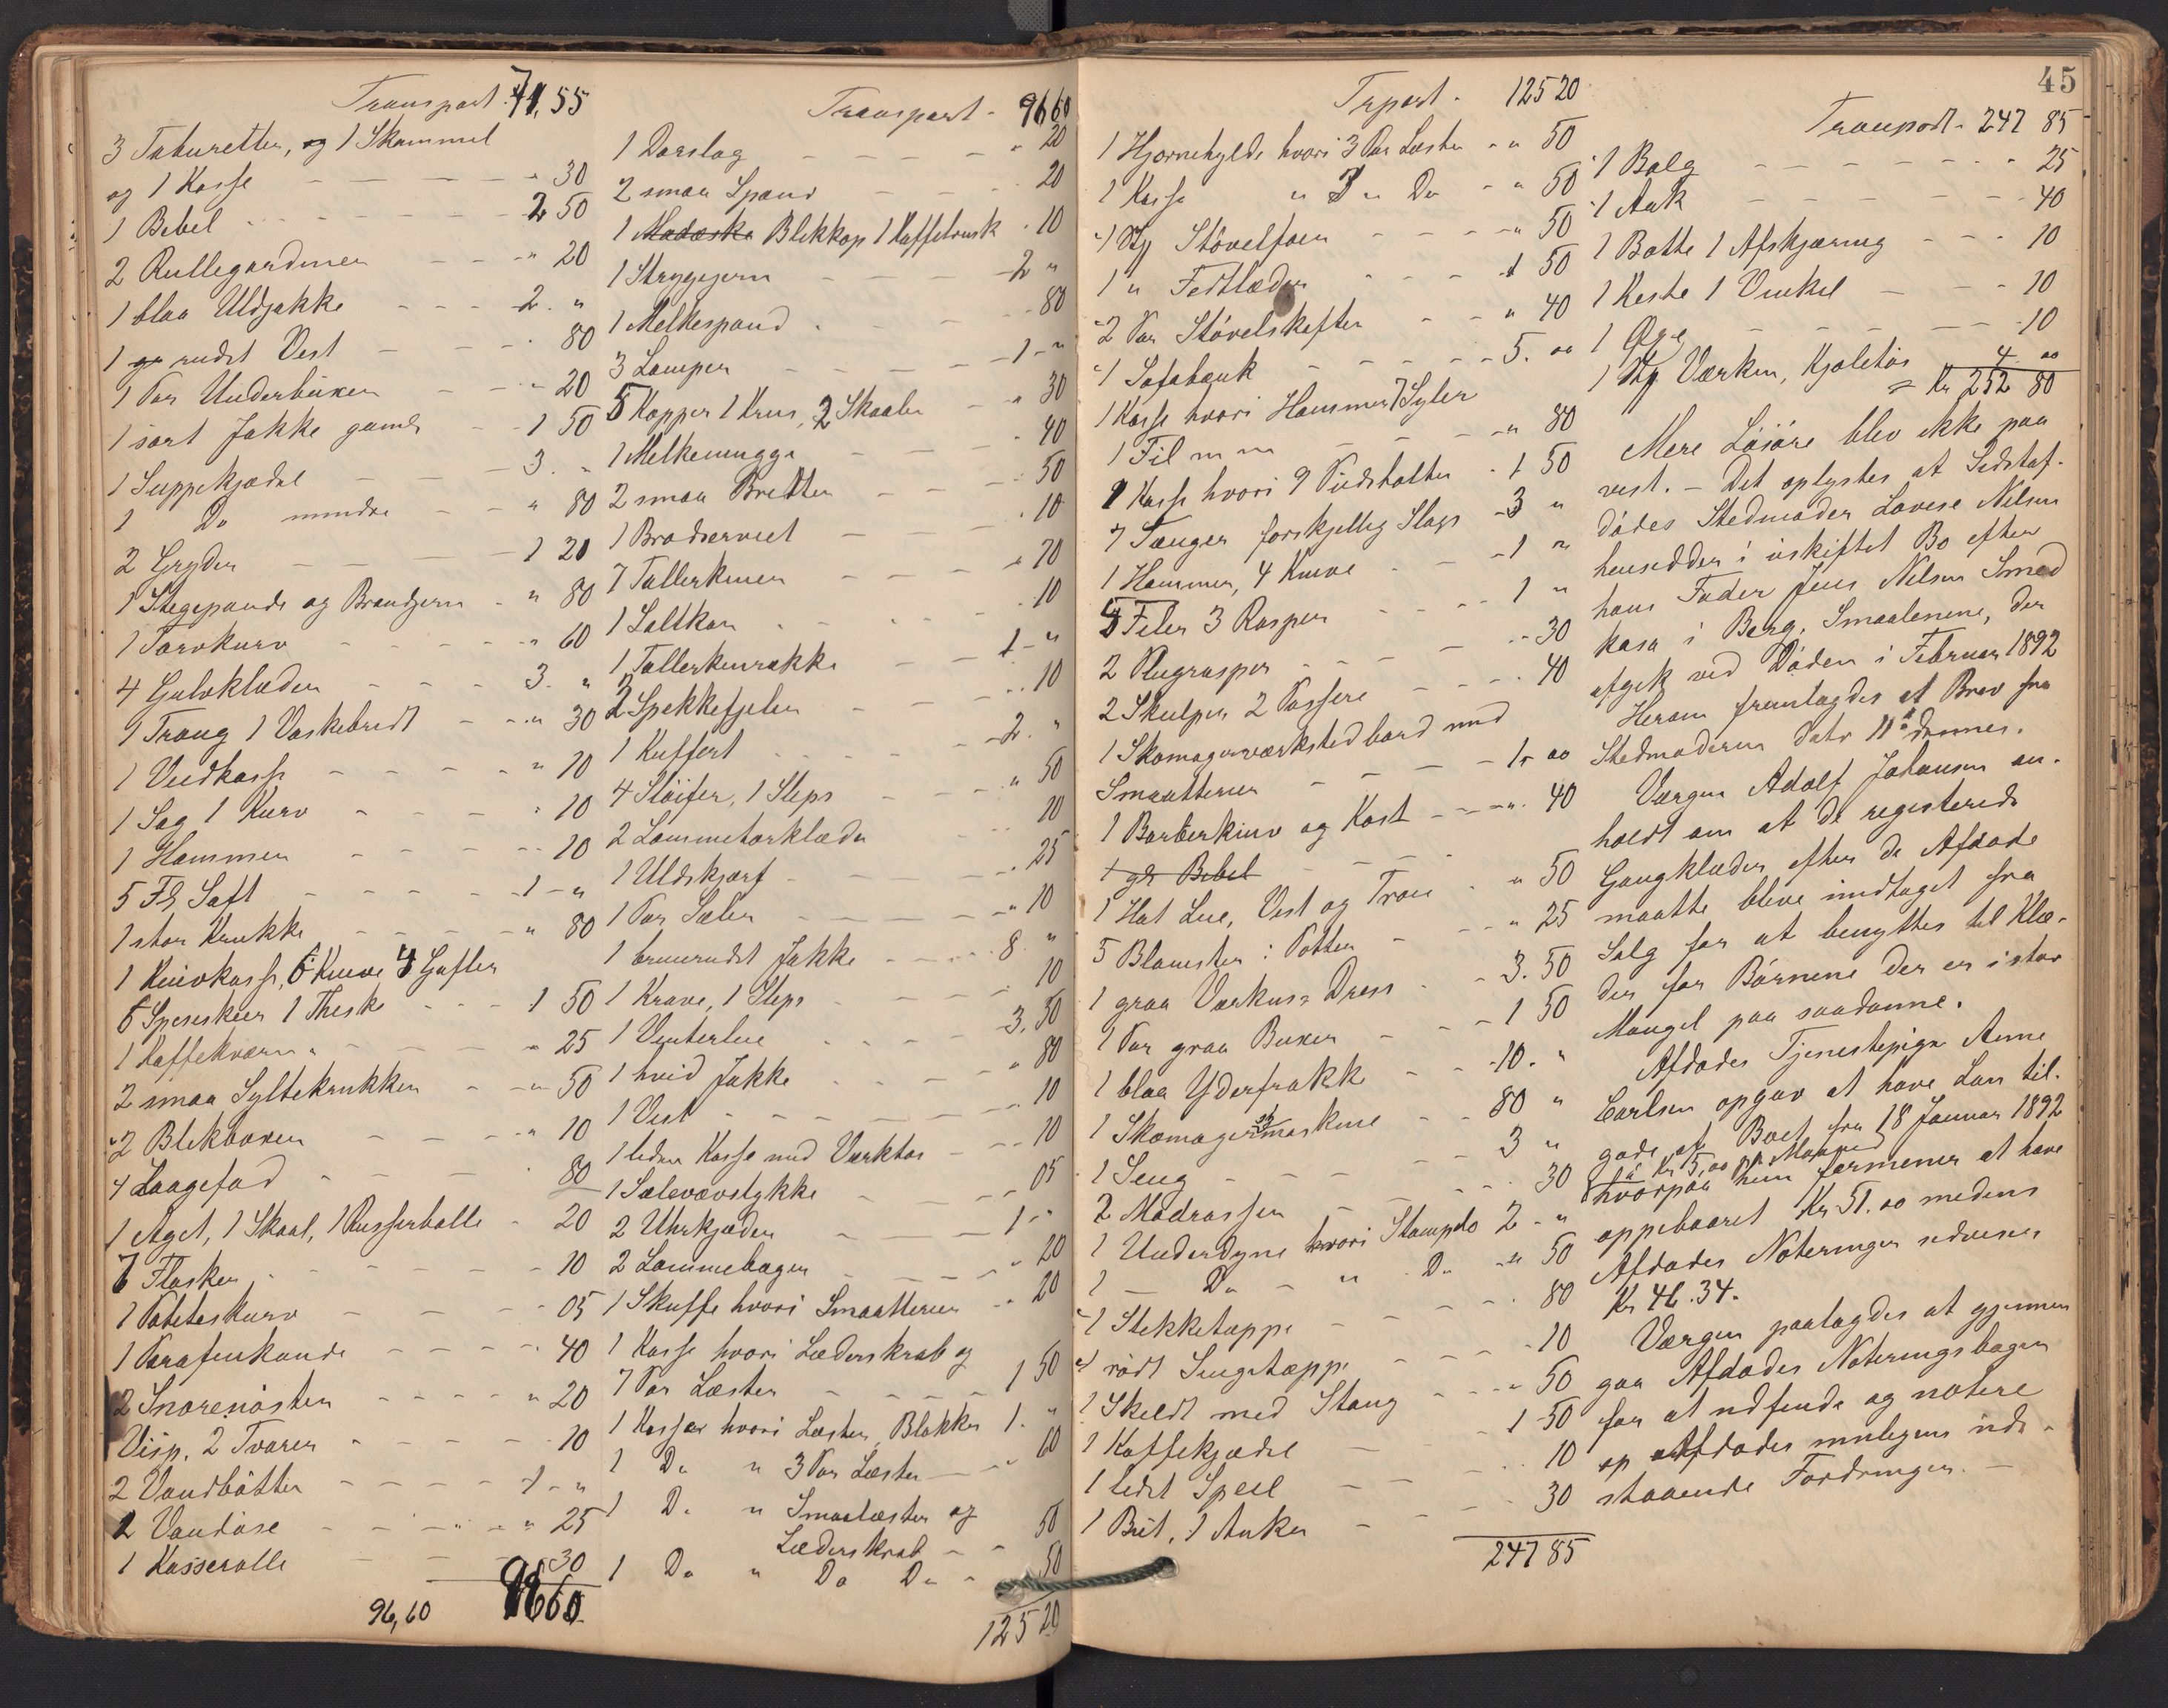 Transport 71,55
3 Taburetter, og 1 Skammel
og 1 Kasse - - - - " 30
1 Bibel - - - - 2 50
2 Rullegardiner - - - " 20
1 blaa Uldjakke - - - 2. "
1 rudet Vest - - - . 80
1 Par Underbuxer - - " 20
1 sort Jakke gaml - - 1 50
1 Suppekjedel - - 3. "
1 Do mindre - - " 80
2 Gryder - - - 1 20
1 Stegepande og Brandjern - " 80
1 Torvkurv - - - " 60
4 Gulvklæder - - - 3. "
1 Traug 1 Vaskebredt - - " 30
1 Vedkasse - - - " 10
1 Sag 1 Kurv - - - " 10
1 Hammer - - - - 10
5 Fl Saft - - - - 1 - "
1 stor Krukke - - - " 80
1 Knivkasse, 6 Knive 4 Gafler
6 Speseskeer 1 Theske - - - 1 50
1 Kaffekværn - - - - " 25
2 smaa Syltekrukker - - " 50
2 Blikboxer - - - " 10
4 Laagefad - - - . 80
1 Aget, 1 Skaal, 1 Punsjerbolle - 20
7 Flasker - - - - 10
1 Poteteskurv - - - 05
1 Parafinkande - - - - 40
2 Snorenøster - - - " 20
Visp, 2 Tvarer - - - - 10
2 Vandbøtter - - - - 1 - "
2 Vandøse - - - - " 25
1 Kasserolle - - - 30
96,60 9660
Transport - 96 60
1 Dørslag - - - - " 20
2 smaa Spand - - - - 20
1 Madæske Blikkop 1 Kaffetragt . 10
1 Strygejern - - - 2 "
1 Melkespand - - - - 80
3 Lamper - - - - 1 - "
5 Kopper 1 Krus, 2 Skaaler - " 30
1 Melkemugge - - - . 40
2 smaa Bretter - - - - 50
1 Brødserviet - - - . 10
7 Tallerkener - - - - " 70
1 Saltkar - - - - . 10
1 Tallerkenrække - - 1 - "
2 Spekkefjeler - - - . . 10
1 Kuffert - - - - 2. "
4 Sløifer, 1 Slips - - - " 50
2 Lommetørklæder - - - 10
1 Uldskjærf - - - - . 25
1 Par Seler - - - - " 10
1 brunrudet Jakke - - - - 8. "
1 Krave, 1 Slips - - - - 10
1 Vinterlue - - - 3.50
1 hvid Jakke - - - - " 80
1 Vest - - - - - 10
1 liden Kasse med Værktøi - - - 10
1 Sælevævstykke - - - - 05
2 Uhrkjeder - - - 1 - "
2 Lommebøger - - - - " 20
1 Skuffe hvori Smaatterier - . 20
1 Kasse hvori Læderskrab og
7 Par Læster - - - - 1 50
1 Kasse hvori Læster, Blokker 1. "
1 Do " 3 Par Læster - - " 60
1 Do " Smaalæster og
Læderskrab - - 50
1 Do " Do Do - 50
125 20
45
Trport - 125 20
1 Hjørnehylde hvori 3 Par Læster - " 50
1 Kasse " 3 " Do - " 50
1 Stk Støvelfoer - - - - " 50
1 " Fedtlæder - - - 1 50
2 Par Støvelskafter - - " 40
1 Sofabænk - - - - 5. 00
1 Kasse hvori Hammer 7 Syler
1 Fil m m - - - - " 80
1 Kasse hvori 9 Pudsholter - 1 50
7 Tænger forskjellig Slags - 3 "
1 Hammer, 4 Knive - - - 1 "
5 Filer 3 Rasper - - - - 1 "
2 Plugrasper - - - - - 30
2 Skulper, 2 Passere - - - . 40
1 Skomagerværkstedbord med
Smaatterier - - - - 1 00
1 Barberkniv og Kost - - - ". 40
1 gl Bibel
1 Hat Lue, Vest og Trøie . " 50
5 Blomster i Potter - - - " 25
1 graa Værkens Dress - - 3.50
1 Par graa Buxer - - - 1 50
1 blaa Yderfrakk - - 10. "
1 Skomagersymaskine - - 80 "
1 Seng - - - - 3 "
2 Madrasser - - - - 30
1 Underdyne hvori Stampelo 2 - "
1 - Do - " Do - " 50
1 Stekketæppe - - - - . 80
1 rødt Sengetæppe - - - - 10
1 Skildt med Stang - - - " 50
1 Kaffekjedel - - - 1 50
1 lidet Speil - - - . . 10
1 Bøt, 1 Anker - - - 30
247 85
Transport - 247 85
1 Balg - - - - - " 25
1 Aak - - - - - 40
1 Bøtte 1 Afskjæring - - - 10
1 Kiste 1 Vinkel - - - 10
1 Øxe - - - - - 10
1 Stk Værken, Kjoletøi 4 00
= Kr 252 80
Mere Løsøre blev ikke paa
vist. - Det oplystes at Sidstaf-
dødes Stedmoder Lovise Nilsen
hensidder i uskiftet Bo efter
hans Fader Jens Nilsen Smed
kasa i Berg, Smaalenene, der
afgik ved Døden i Februar 1892
Herom fremlagdes et Brev fra
Stedmoderen datr 11te dennes.
Værgen Adolf Johansen an-
holdt om at de registerede
Gangklæder efter de Afdøde
maatte blive undtaget fra
Salg for at benyttes til Klæ-
der for Børnene der er i stor
Mangel paa saadanne.
Afdødes Tjenestepige Anne
Carlsen opgav at have Løn til-
gode af Boet fra 18 Januar 1892
á Kr 5,00 pr Maaned
hvorpaa hun formener at have
oppebaaret Kr 51.00 medens
Afdødes Noteringer udviser
Kr 46.34.
Værgen paalagdes at gjennem
gaa Afdødes Noteringsbøger
for at udfinde og notere
op Afdødes muligens ude-
staaende Fordringer. -